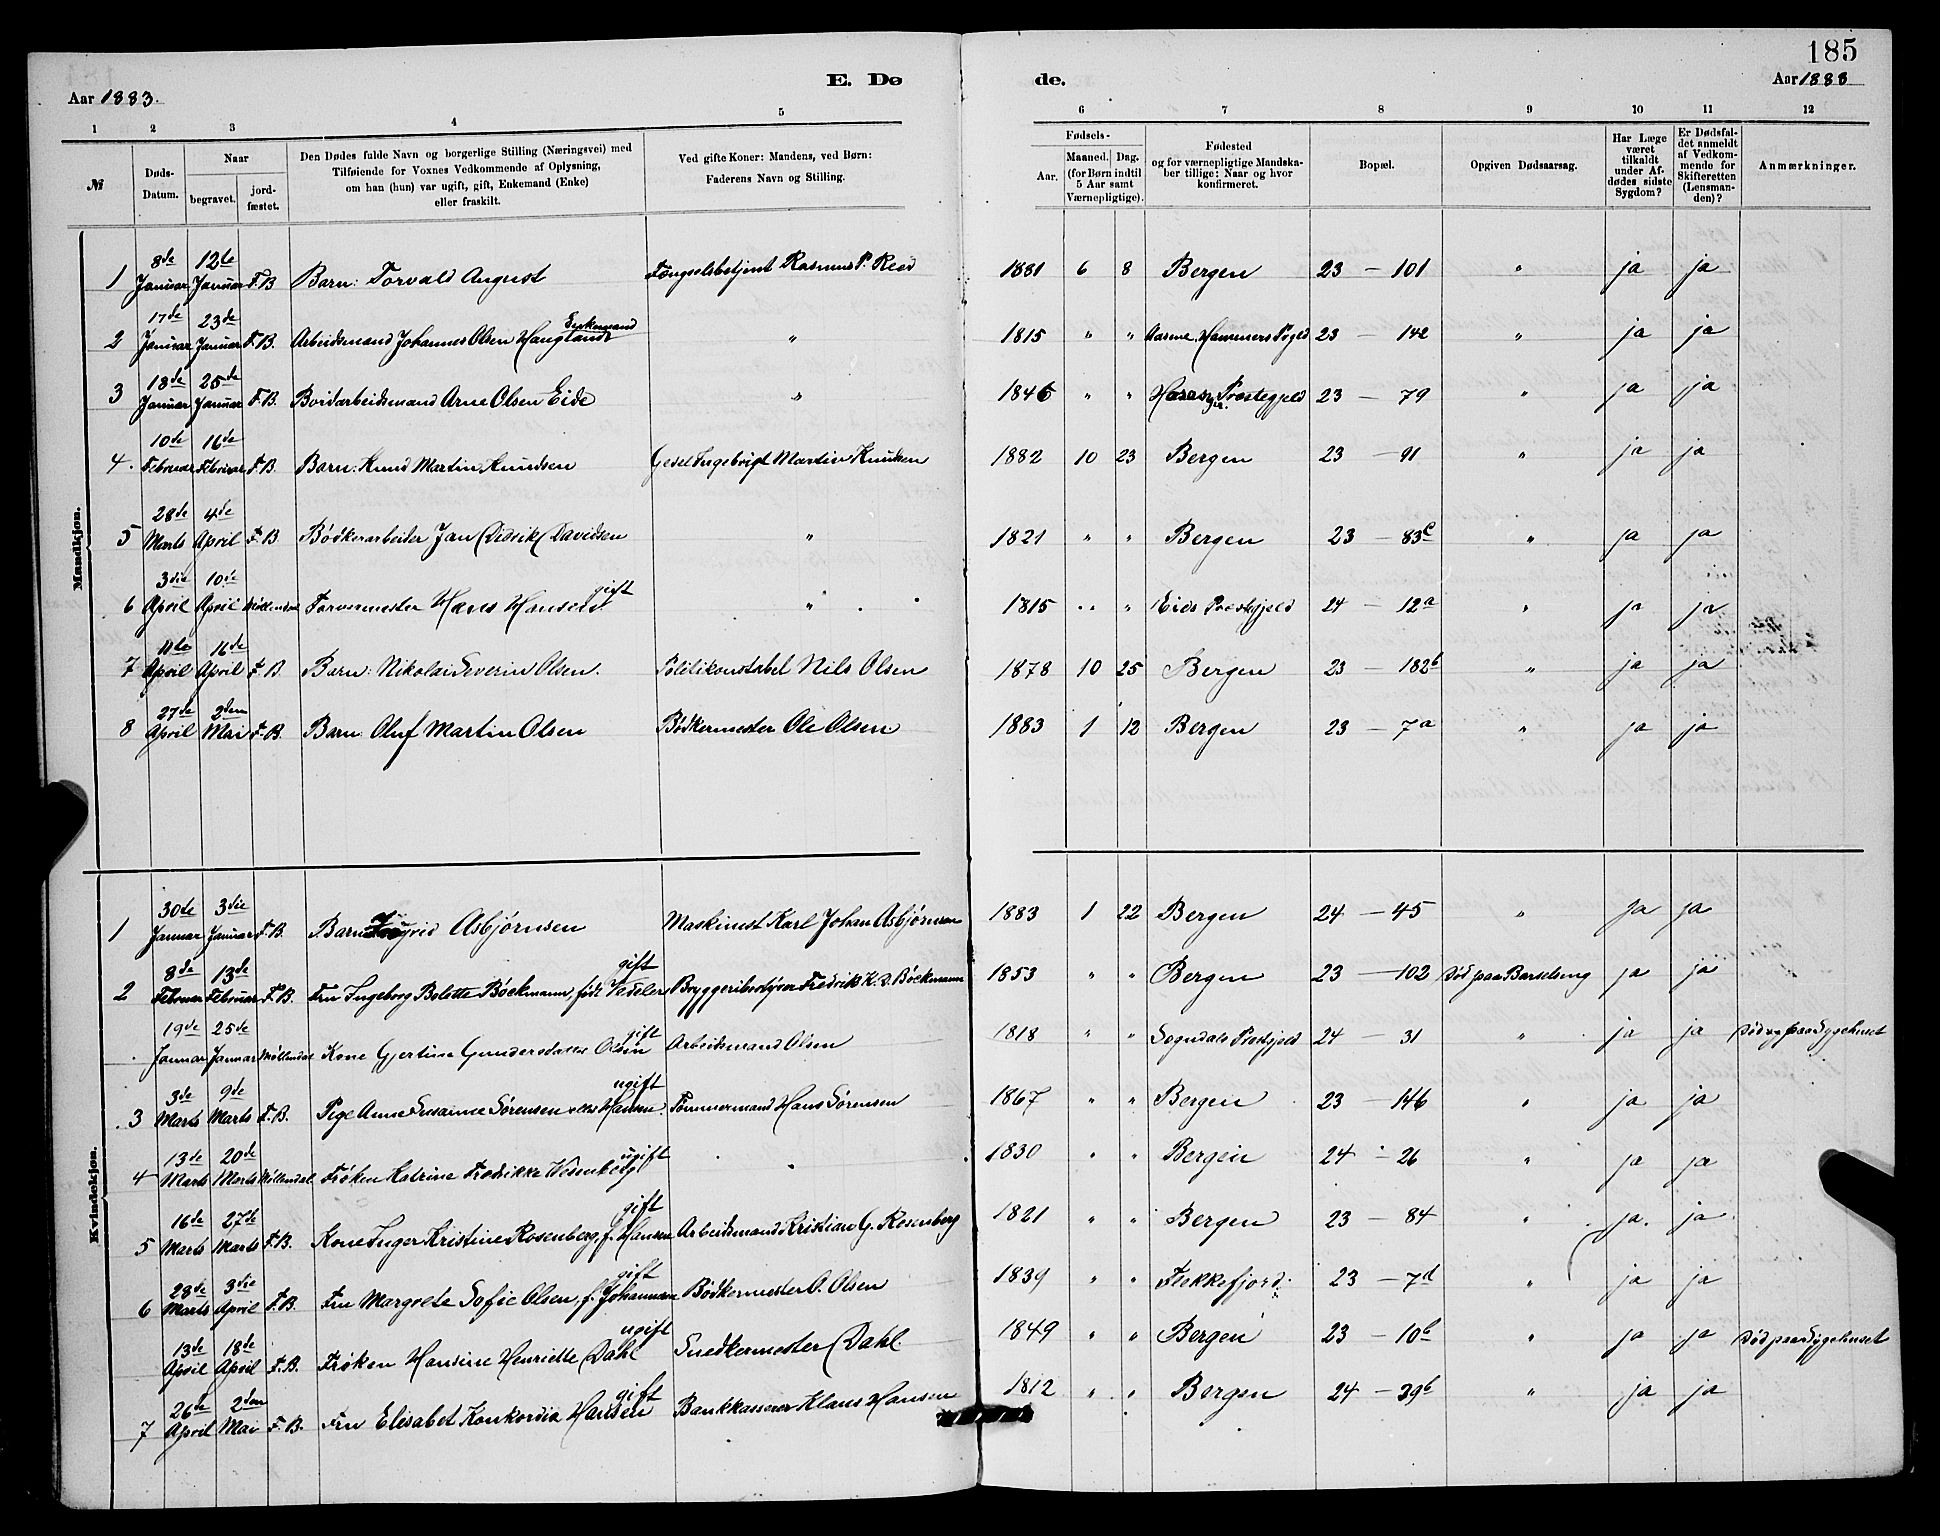 185
Aar 1883.
E. Dø
de.
Aar 1883
1 2 3 4 5 6 7 8 9 10 11 12
№
Døds-Datum.
Naar
begravet.
jordfæstet.
Den Dødes fulde Navn og borgerlige Stilling (Næringsvei) med
Tilføiende for Voxnes Vedkommende af Oplysning,
om han (hun) var ugift, gift, Enkemand (Enke)
eller fraskilt.
Ved gifte Koner: Mandens, ved Børn:
Faderens Navn og Stilling.
Fødsels-
Aar.
Maaned. Dag.
(for Børn indtil
5 Aar samt
Værnepligtige).
Fødested
og for værnepligtige Mandska-
ber tillige: Naar og hvor
konfirmeret.
Bopæl.
Opgiven Dødsaarsag.
Har Læge
været
tilkaldt
under Af-
dødes sidste
Sygdom?
Er Dødsfal-
det anmeldt
af Vedkom-
mende for
Skifteretten
(Lensman-
den)?
Anmærkninger.
Mandkjøn.
1 8de Januar 12te Januar F.B. Barn: Torvald August Fængselsbetjent Rasmus P. 1881 6 8 Bergen 23 — 101 " ja ja
2 17de Januar 23de Januar F.B. Arbeidsmand Johannes Olsen Haugland Enkemand " 1815 " " Hammers Pgld 23 — 142 " ja ja
3 18de Januar 25de Januar F.B. Bordarbeidsmand Arne Olsen Eide " 1846 " " Præstegjeld 23 — 79 " ja ja
4. 10de Februar 16de Februar F.B. Barn: Knud Martin Knudsen Ingebrigt Martin Knudsen 1882 10 23 Bergen 23 — 91 " ja ja
5 28de Marts 4de April F.B. Bødkerarbeider Jan Didrik Davidsen " 1821 " " Bergen 23 — 83c " ja ja
6 3die April 10de April Møllendal Farvermester Hans Hansen gift " 1815 " " Eids Præstgjeld 24 — 12a " ja ja
7 11te April 16de April F.B. Barn: Nikolai Severin Olsen. Politikonstabel Nils Olsen 1878 10 25 Bergen 23 — 182b " ja ja
8 27de April 2den Mai F.B. Barn: Oluf Martin Olsen Bødkermester Ole Olsen 1883 1 12 Bergen 23 — 7a " ja ja
Kvindekjøn.
1 30de Januar 3die Januar F.B. Barn Asbjørnsen Maskinist Karl Johan Asbjørnsen 1883 1 22 Bergen 24 — 45 " ja ja
2 8de Februar 13de Februar F.B. Fru Ingeborg Bolette Böckmann, født Vedeler gift Bryggeribestyrer Fredrik K. D. Böckmann 1853 " " Bergen 23 — 102 Död paa Barselseng ja ja
. 19de Januar 25de Januar Møllendal Kone Gjertine Gundersdatter Olsen gift Arbeidsmand Olsen 1818 " " Sogndals Præstgjeld 24 — 31 " ja ja Död paa Sygehuset
3 3de Marts 9de Marts F.B. Pige Anne Susanne Sørensen eller Hansen. ugift Tømmermand Hans Sørensen 1867 " " Bergen 23 — 146 " ja ja
4 13de Marts 20de Marts Møllendal Frøken Katrine Fredrikke Wesenberg ugift " 1830 " " Bergen 24 — 26 " ja ja
5 16de Marts 27de Marts F.B. Kone Inger Kristine Rosenberg, f. Hansen gift Arbeidsmand Kristian G. Rosenberg 1821 " " Bergen 23 — 84 " ja. ja
6 28de Marts 3die April F.B. Fru Margrete Sofie Olsen, f. Johannesen gift Bødkermester O. Olsen 1839 " " Flekkefjord. 23 — 7d " ja ja
13de April 18de April F.B. Frøken Hansine Henriette Dahl ugift Snedkermester Dahl. 1849 " " Bergen 23 — 10b " ja ja Död paa Sygehuset
7 26de April 2den Mai F.B. Fru Elisabet Konkordia Hansen gift Bankkasserer Klaus Hansen 1812 " " Bergen 24 — 39b " ja ja